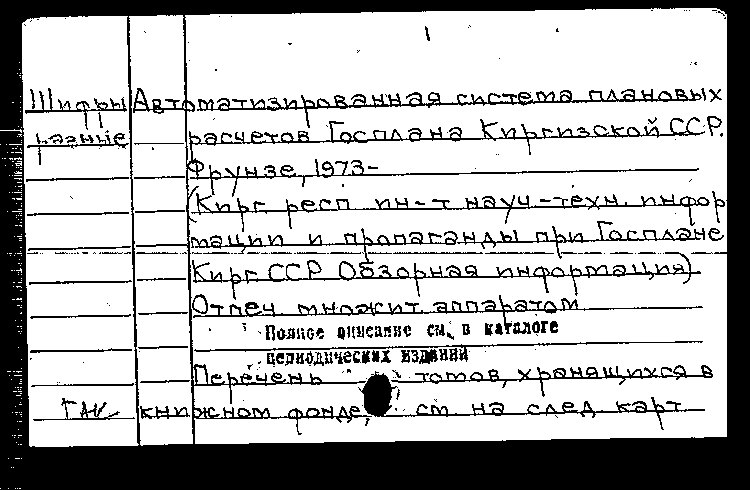 1
Шифры Автоматизированная система плановых
разные расчетов Госплана Киргизской ССР.
Фрунзе, 1973-
(Кирг. респ ин-т науч-техн. инфор
мации и пропаганды при Госплане
Кирг ССР Обзорная информация)
Отпеч множит аппаратом
Полное описание см. в каталоге
периодических изданий
Перечень томов, хранящихся в
книжном фонде, см на след карт